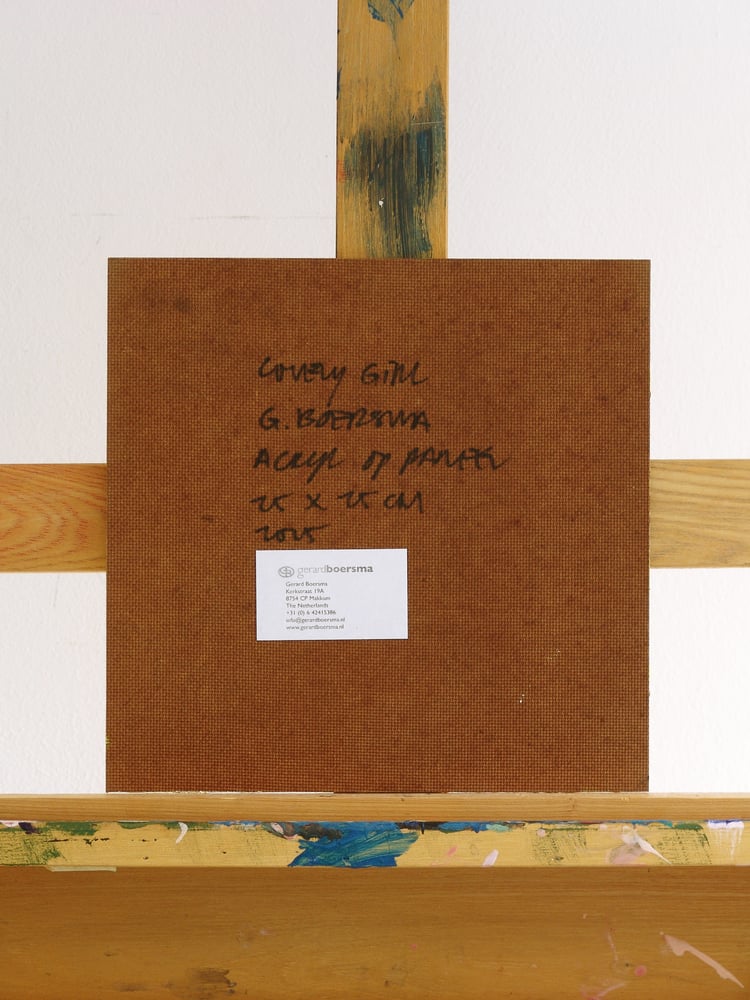 LOVELY GIRL
G. BOERSMA
ACRYL OP PANEEL
25 X 25 CM
2025
gerardboersma
Gerard Boersma
Kerkstraat 19A
8754 CP Makkum
The Netherlands
+31 (0) 6 42415386
info@gerardboersma.nl
www.gerardboersma.nl